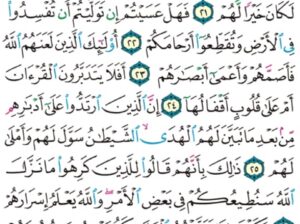 لَكَانَ خَيْرًا لَّهُمْ ٢١ فَهَلْ عَسَيْتُمْ إِن تَوَلَّيْتُمْ أَن تُفْسِدُوا۟
فِى ٱلْأَرْضِ وَتُقَطِّعُوٓا۟ أَرْحَامَكُمْ ٢٢ أُو۟لَٰٓئِكَ ٱلَّذِينَ لَعَنَهُمُ ٱللَّهُ
فَأَصَمَّهُمْ وَأَعْمَىٰٓ أَبْصَٰرَهُمْ ٢٣ أَفَلَا يَتَدَبَّرُونَ ٱلْقُرْءَانَ
أَمْ عَلَىٰ قُلُوبٍ أَقْفَالُهَآ ٢٤ إِنَّ ٱلَّذِينَ ٱرْتَدُّوا۟ عَلَىٰٓ أَدْبَٰرِهِم
مِّنۢ بَعْدِ مَا تَبَيَّنَ لَهُمُ ٱلْهُدَى ۙ ٱلشَّيْطَٰنُ سَوَّلَ لَهُمْ وَأَمْلَىٰ
لَهُمْ ٢٥ ذَٰلِكَ بِأَنَّهُمْ قَالُوا۟ لِلَّذِينَ كَرِهُوا۟ مَا نَزَّلَ
ٱللَّهُ سَنُطِيعُكُمْ فِى بَعْضِ ٱلْأَمْرِ ۖ وَٱللَّهُ يَعْلَمُ إِسْرَارَهُمْ